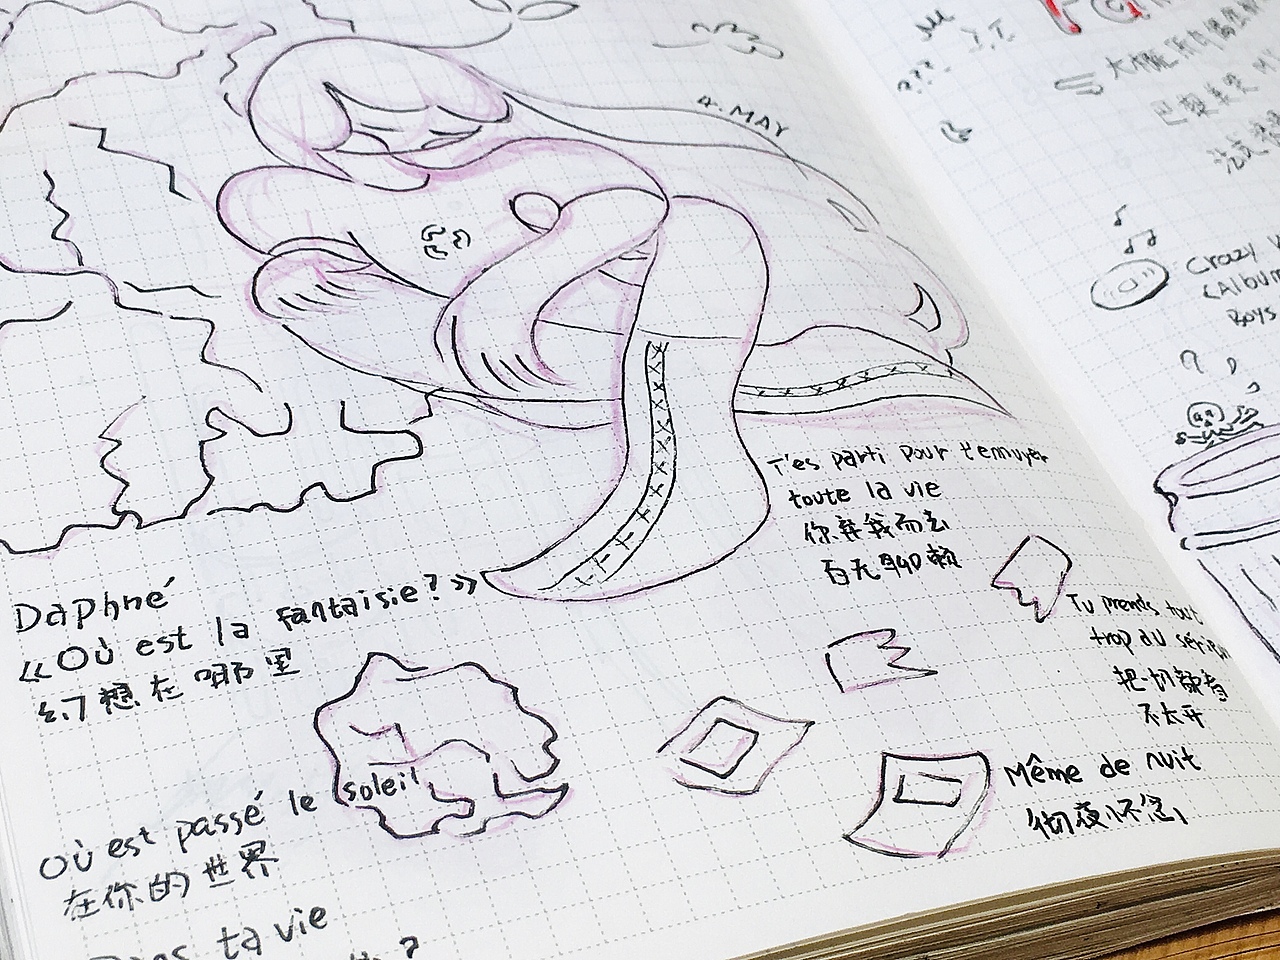 4. MAY
T'es parti pour t'ennuyer
toute la vie
你弃我而去
百无聊赖
Daphné
«Où est la fantaisie?»
幻想在哪里
Tu prends tout
trop au sérieux
把一切都看
不太开
Même de nuit
彻夜怀念
Où est passé le soleil
在你的世界
Dans ta vie
?
Crazy
(Album
Boys